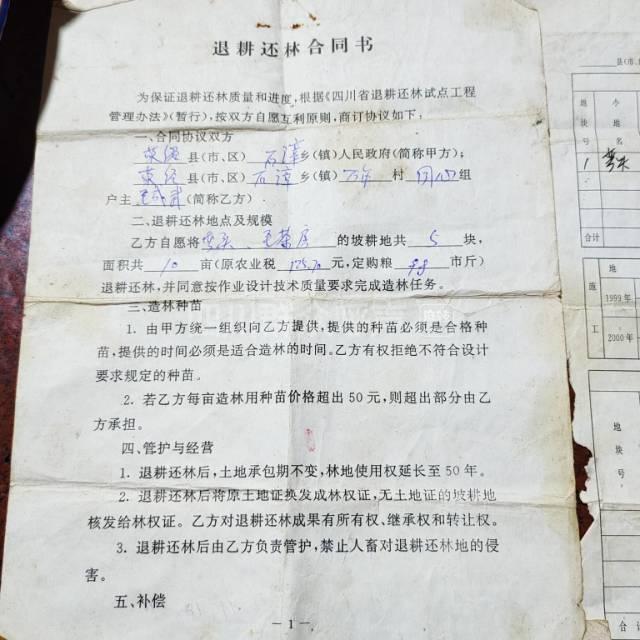 退耕还林合同书
为保证退耕还林质量和进度,根据《四川省退耕还林试点工程
管理办法》(暂行),按双方自愿互利原则,商订协议如下:
一、合同协议双方
县(市、区) 石漳 乡(镇)人民政府(简称甲方);
县(市、区) 石漳 乡(镇) 万年 村 组
户主 (简称乙方)
二、退耕还林地点及规模
乙方自愿将 的坡耕地共 5 块,
面积共 10 亩(原农业税 元,定购粮 市斤)
退耕还林,并同意按作业设计技术质量要求完成造林任务。
三、造林种苗
1. 由甲方统一组织向乙方提供,提供的种苗必须是合格种
苗,提供的时间必须是适合造林的时间。乙方有权拒绝不符合设计
要求规定的种苗。
2. 若乙方每亩造林用种苗价格超出 50 元,则超出部分由乙
方承担。
四、管护与经营
1. 退耕还林后,土地承包期不变,林地使用权延长至 50 年。
2. 退耕还林后将原土地证换发成林权证,无土地证的坡耕地
核发给林权证。乙方对退耕还林成果有所有权、继承权和转让权。
3. 退耕还林后由乙方负责管护,禁止人畜对退耕还林地的侵
害。
五、补偿
— 1 —
县(市、
地块号
地名
1
合计
施工
地
1999年
2000年
地块号
合计